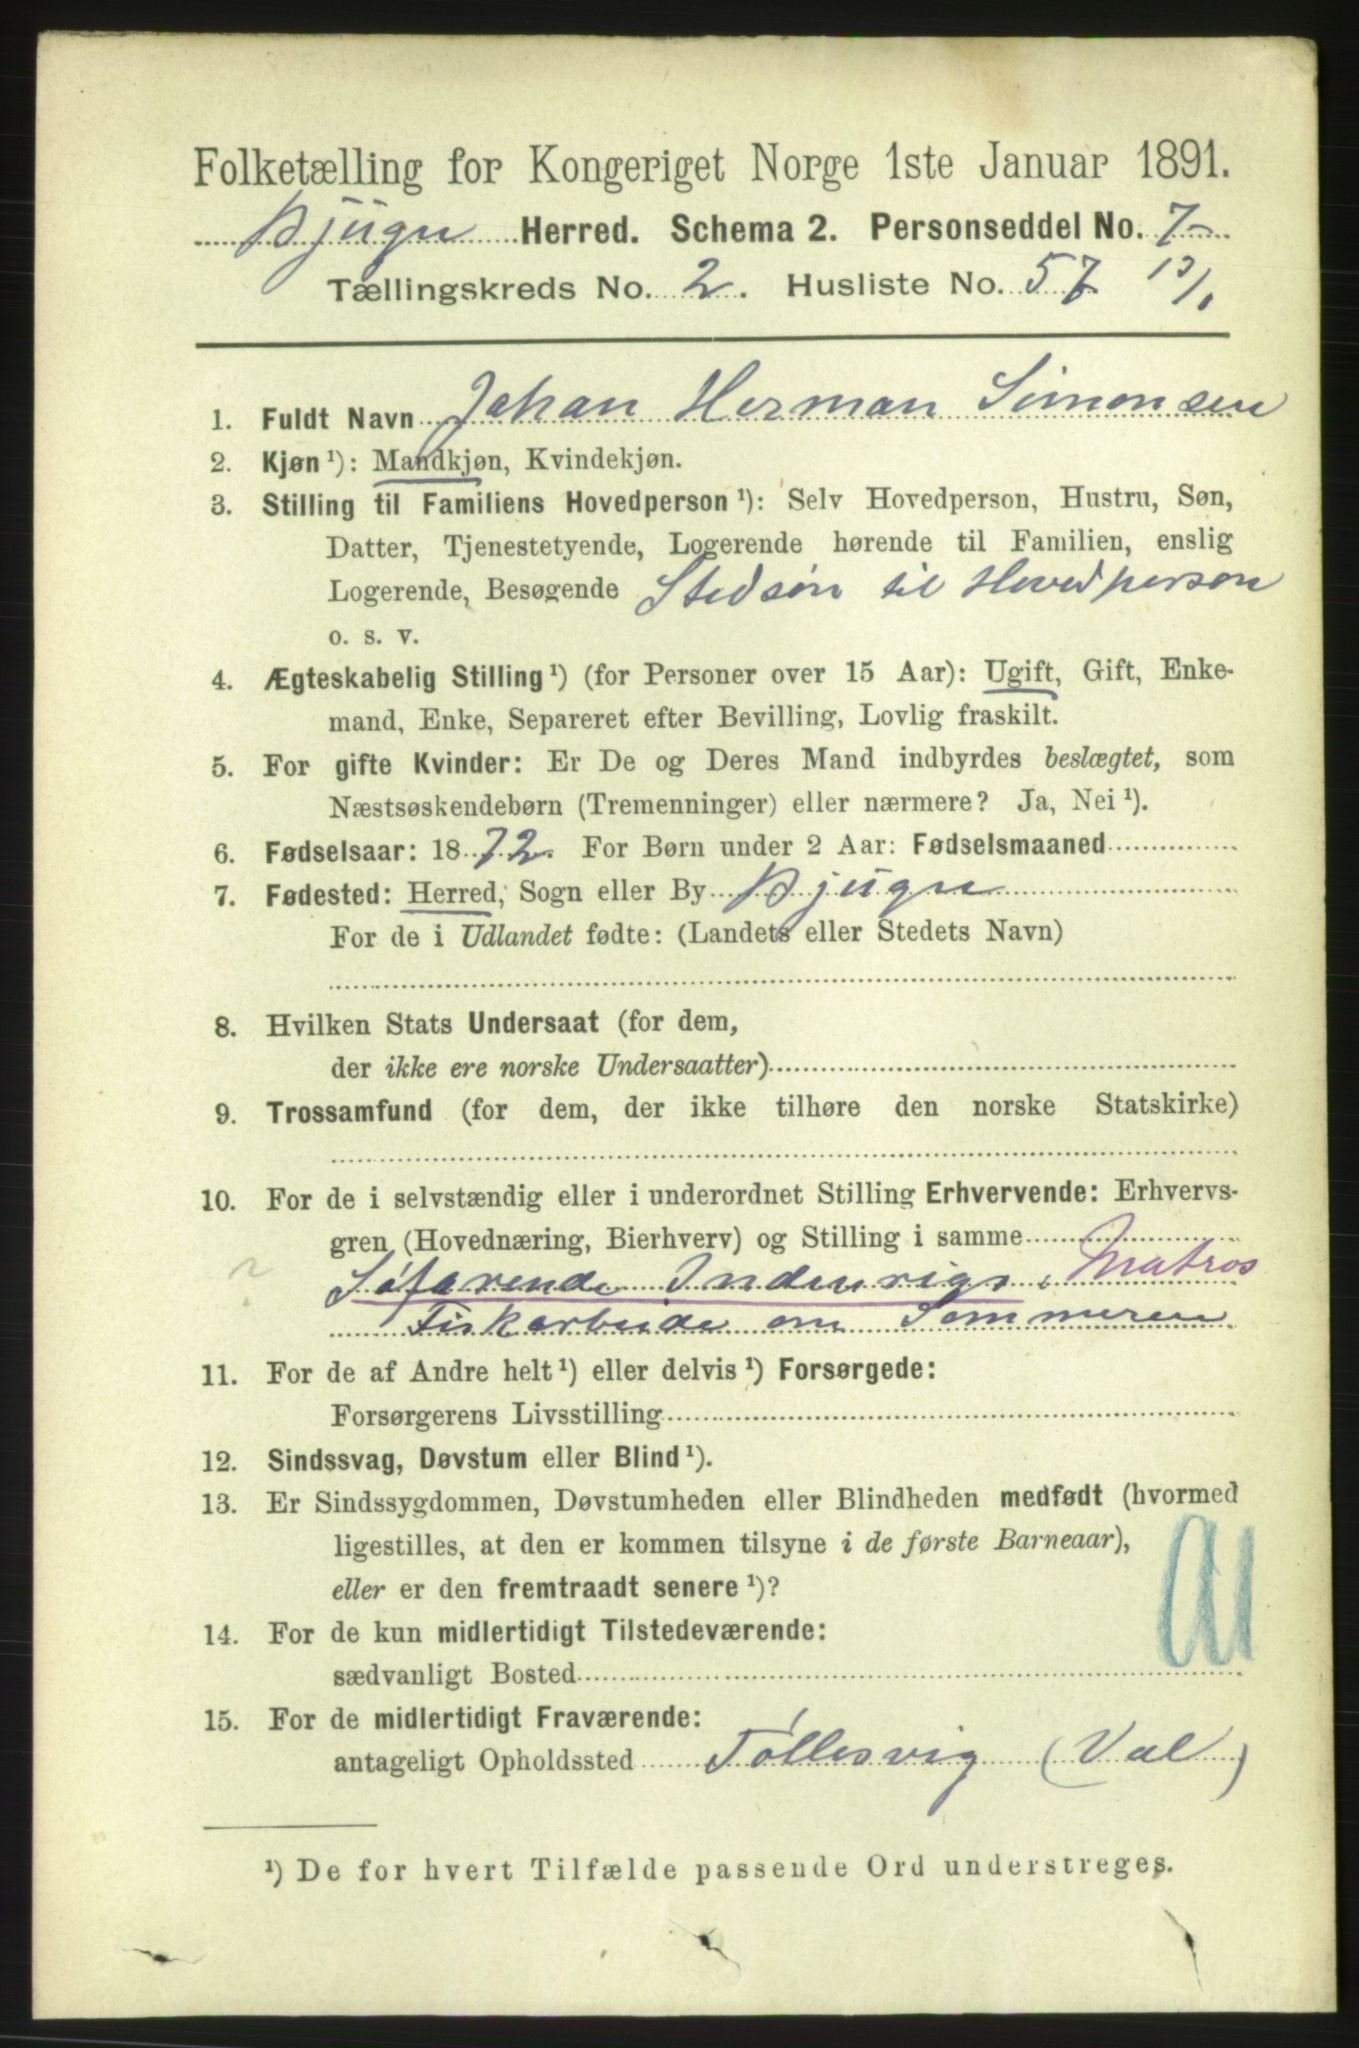 Folketælling for Kongeriget Norge 1ste Januar 1891.
Bjugn Herred. Schema 2. Personseddel No. 7
Tællingskreds No. 2. Husliste No. 57
1. Fuldt Navn Johan Herman Simonsen
2. Kjøn ¹): Mandkjøn, Kvindekjøn.
3. Stilling til Familiens Hovedperson ¹): Selv Hovedperson, Hustru, Søn,
Datter, Tjenestetyende, Logerende hørende til Familien, enslig
Logerende, Besøgende Stedsøn til Hovedperson
o. s. v.
4. Ægteskabelig Stilling ¹) (for Personer over 15 Aar): Ugift, Gift, Enke-
mand, Enke, Separeret efter Bevilling, Lovlig fraskilt.
5. For gifte Kvinder: Er De og Deres Mand indbyrdes beslægtet, som
Næstsøskendebørn (Tremenninger) eller nærmere? Ja, Nei ¹).
6. Fødselsaar: 1872. For Børn under 2 Aar: Fødselsmaaned
7. Fødested: Herred, Sogn eller By Bjugn
For de i Udlandet fødte: (Landets eller Stedets Navn)
8. Hvilken Stats Undersaat (for dem,
der ikke ere norske Undersaatter)
9. Trossamfund (for dem, der ikke tilhøre den norske Statskirke)
10. For de i selvstændig eller i underordnet Stilling Erhvervende: Erhvervs-
gren (Hovednæring, Bierhverv) og Stilling i samme
Søfarende Indenrigs, Matros
Fiskarbeide om Sommeren
11. For de af Andre helt ¹) eller delvis ¹) Forsørgede:
Forsørgerens Livsstilling
12. Sindssvag, Døvstum eller Blind ¹).
13. Er Sindssygdommen, Døvstumheden eller Blindheden medfødt (hvormed
ligestilles, at den er kommen tilsyne i de første Barneaar),
eller er den fremtraadt senere ¹)?
14. For de kun midlertidigt Tilstedeværende:
sædvanligt Bosted
15. For de midlertidigt Fraværende:
antageligt Opholdssted Tøllesvig (Val)
¹) De for hvert Tilfælde passende Ord understreges.